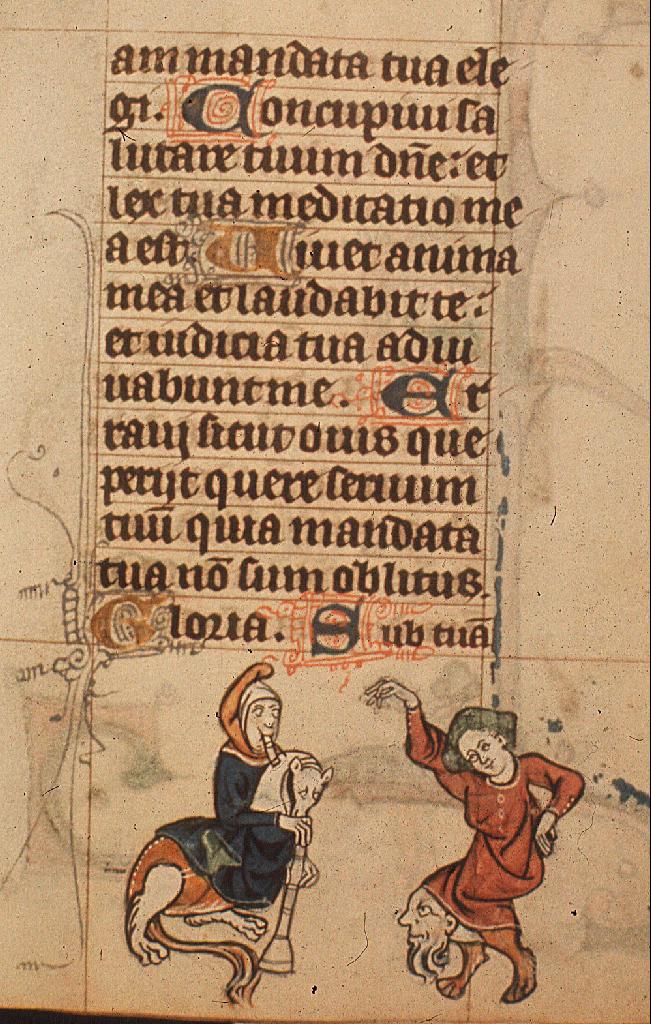 am mandata tua ele
gi. Concupiui sa
lutare tuum dn̄e: et
lex tua meditatio me
a est. Uiuet anima
mea et laudabit te:
et iudicia tua adiu
uabunt me. Er
raui sicut ouis que
perijt quere seruum
tuū quia mandata
tua nō sum oblitus.
Gloria. Sub tuā